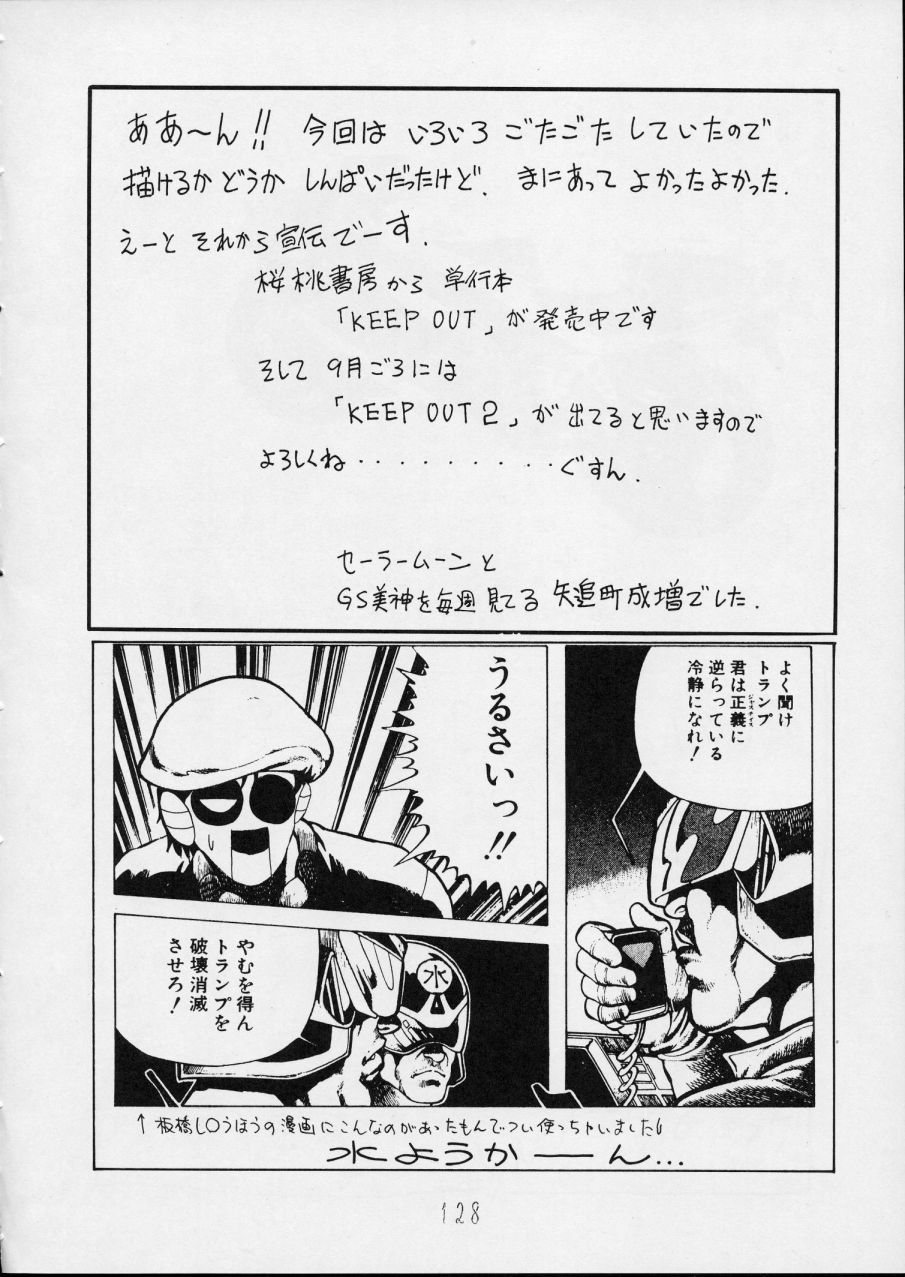 ああ〜ん!! 今回は いろいろ ごたごた していたので
描けるか どうか しんぱいだったけど. まにあって よかったよかった.
えーと それから 宣伝でーす.
桜桃書房から 単行本
「KEEP OUT」が発売中です
そして 9月ごろには
「KEEP OUT 2」が 出てると思いますので
よろしくね・・・・・・・・・・ぐすん.
セーラームーンと
GS美神を毎週 見てる 矢追町成増でした.
よく聞け
トランプ
君は正義に
ジャスティス
逆らっている
冷静になれ!
うるさいっ!!
やむを得ん
トランプを
破壊消滅
させろ!
水
↑板橋し〇うほうの漫画にこんなのがあったもんでつい使っちゃいました
水ようかーん...
128